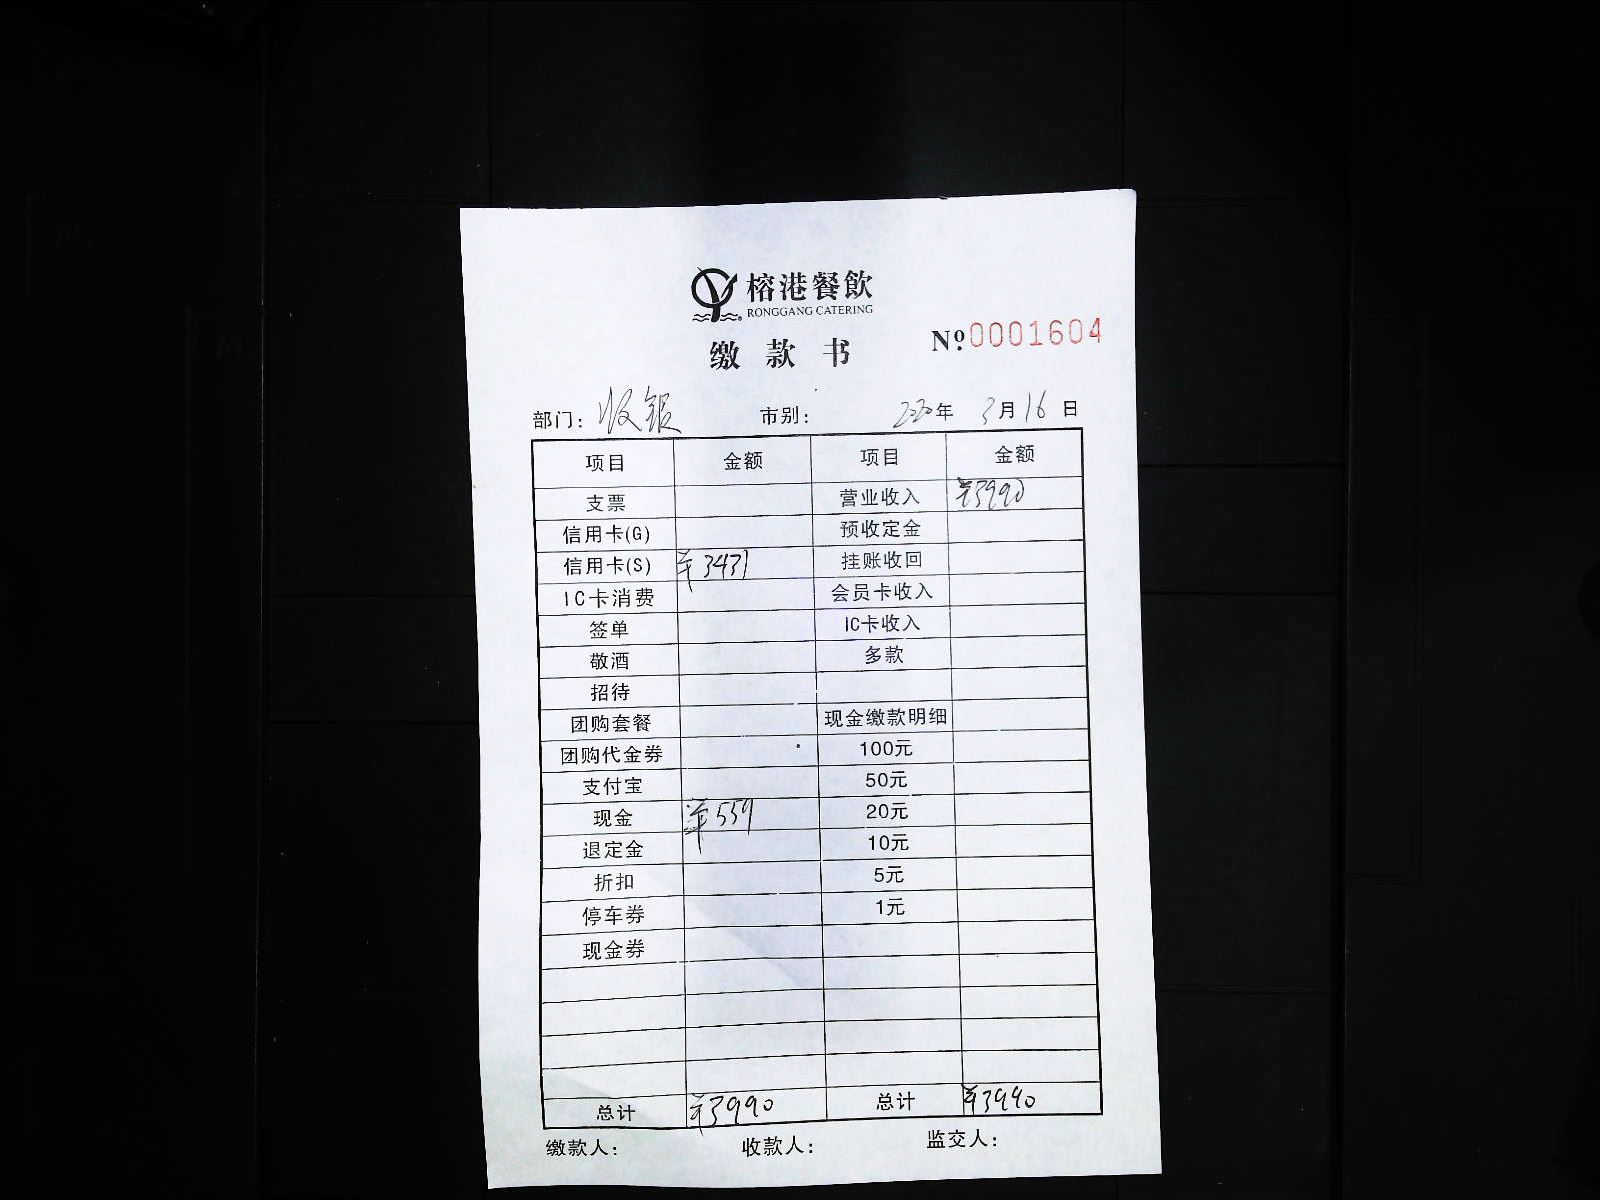 榕港餐飲
RONGGANG CATERING
缴款书
№0001604
部门：收银 市别： 2020年 3月16日
项目 金额 项目 金额
支票 营业收入 ¥3990
信用卡(G) 预收定金
信用卡(S) ¥3431 挂账收回
IC卡消费 会员卡收入
签单 IC卡收入
敬酒 多款
招待
团购套餐 现金缴款明细
团购代金券 100元
支付宝 50元
现金 ¥559 20元
退定金 10元
折扣 5元
停车券 1元
现金券
总计 ¥3990 总计 ¥3990
缴款人： 收款人： 监交人：